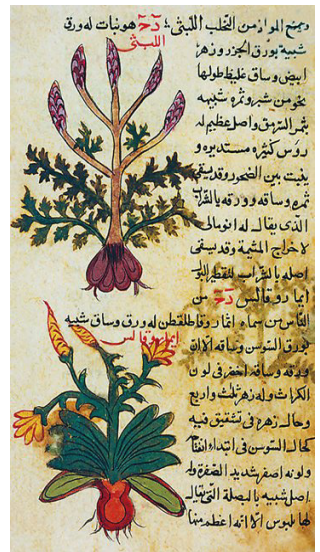 المواد من دح هو نبات له ورق
شبيه بورق الجزر وزهر
ابيض وساق غليظ طولها
نحو من شبر وثمره شبيه
بثمر السرمق واصل عظيم له
رؤس كثيره مستديره و
ينبت بين الصخور وقد يسقى
ثمره وساقه وورقه بالشراب
الذى يقال له انومالى
لاخراج المشيمة وقد يسقى
اصله بالشراب لتقطير البول
ايماروقالس دح من
الناس من سماه ايماروقاطلقطن له ورق وساق شبيه
ايماروقالس
بورق السوسن وساقه الا ان
ورقه وساقه اخضر فى لون
الكراث وله زهر ثلث واربع
وحال زهره فى تشقيق فيه
كحال السوسن فى ابتداء
ولونه اصفر شديد الصفرة وله
اصل شبيه بالبصلة التى يقال
لها بلبوس الا انه اعظم منها